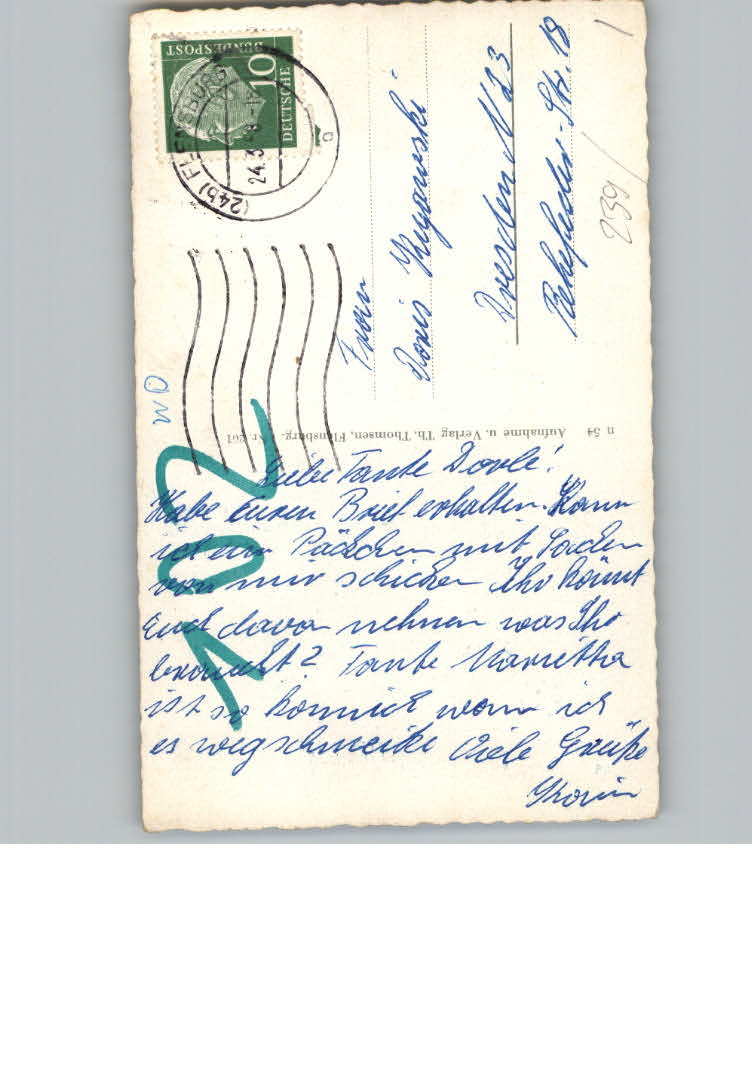 DEUTSCHE
BUNDESPOST
10
(24b) FLENSBURG
24.3.58
a
Frau
Doris
Dresden N 23
Str. 18
239
1
102
n 54 Aufnahme u. Verlag Th. Thomsen, Flensburg. Nr. 261
Liebe Tante Dorle!
Habe Euren Brief erhalten. Kann
ich ein Päckchen mit Sachen
von mir schicken Ihr könnt
Euch davon nehmen was Ihr
braucht? Tante
ist so komisch wenn ich
es wegschmeiße Viele Grüße